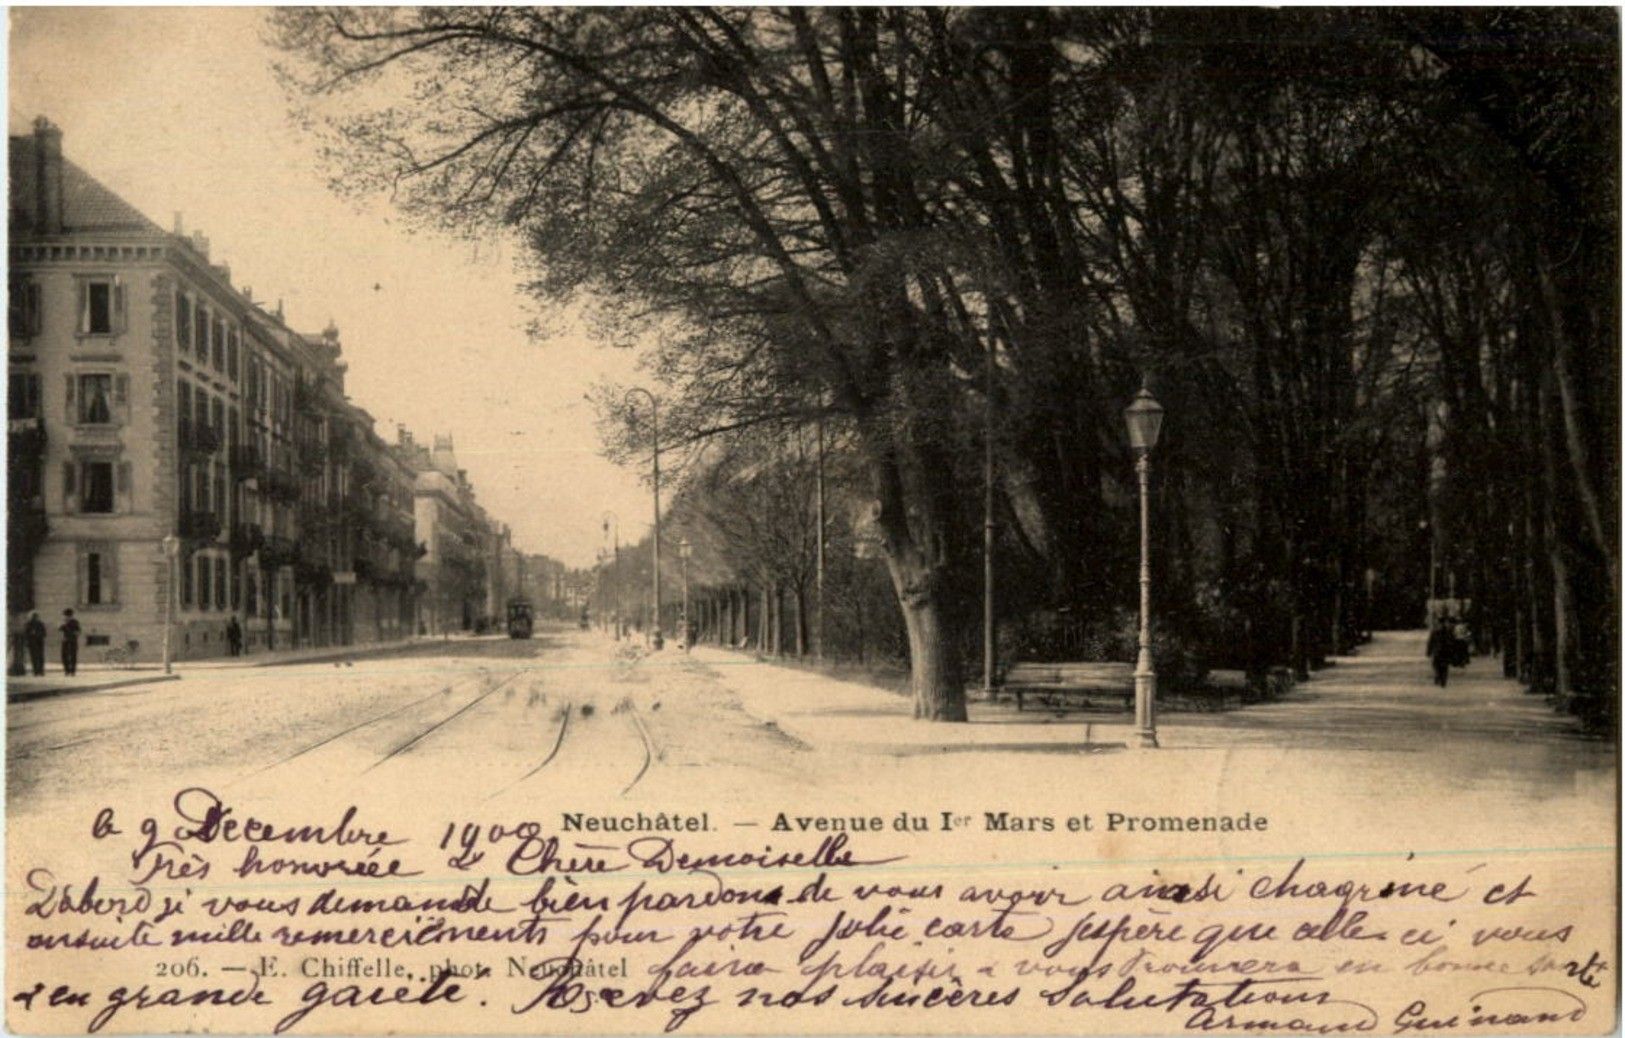 le 9 Decembre 1900
Neuchâtel. — Avenue du Ier Mars et Promenade
Très honorée & Chère Demoiselle
D'abord je vous demande bien pardon de vous avoir ainsi chagriné et
ensuite mille remerciements pour votre jolie carte j'espère que celle ci vous
206. — E. Chiffelle, phot. Neuchâtel
faira plaisir & vous trouvera en bonne santé
& en grande gaieté. Recevez nos sincères salutations
Armand Guinand